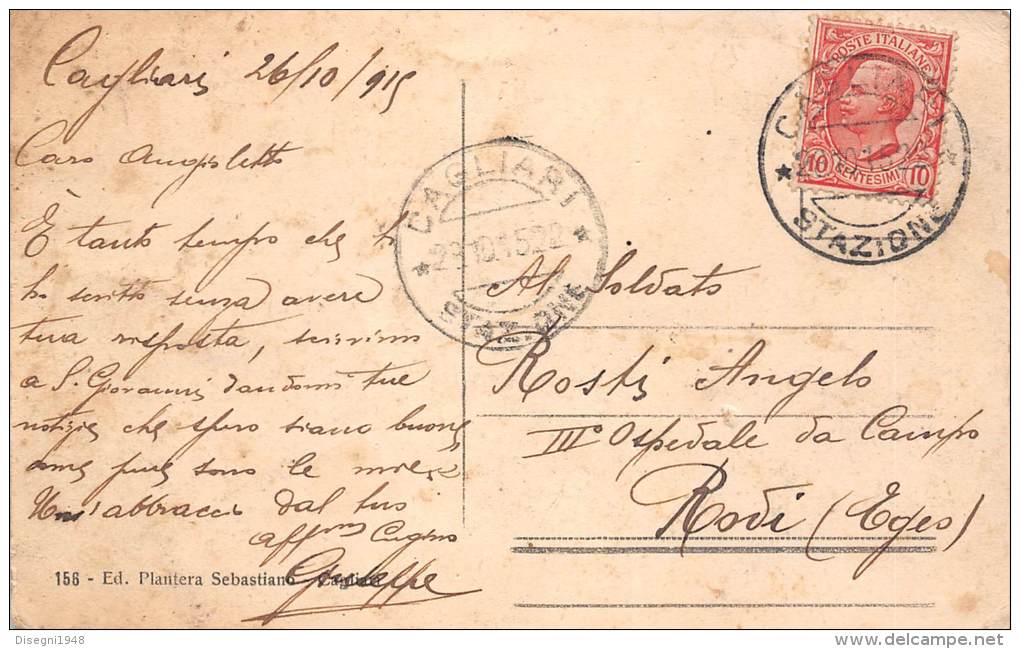 Cagliari 26/10/915
Caro Angioletto
È tanto tempo che ti
ho scritto senza avere
tua risposta, scrivimi
a S. Giovanni dandomi tue
notizie che spero siano buone
come pure sono le mie
Un abbraccio dal tuo
aff.mo Cugino
Giuseppe
156 - Ed. Plantera Sebastiano - Cagliari
CAGLIARI
STAZIONE
POSTE ITALIANE
10 CENTESIMI 10
CAGLIARI
STAZIONE
Al Soldato
Rosti Angelo
III° Ospedale da Campo
Rodi (Egeo)
Disegni1948
delcampe.net